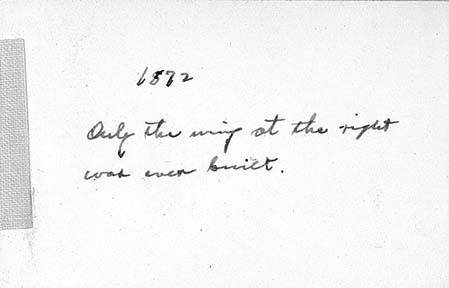 1872
Only the wing at the right
was ever built.